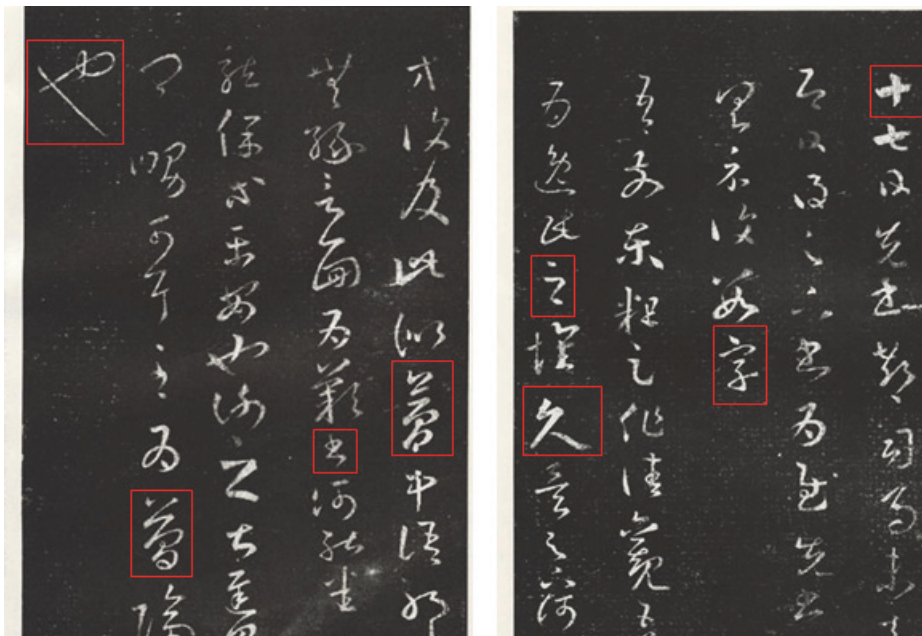 十七日先書郗司馬未去
即日得足下書為慰先書
具示復數字
吾前東粗足作佳觀吾
為逸民之懷久矣足下何
方復及此似夢中語耶
無緣言面為歎書何能悉
龍保等平安也謝之甚遲見
卿舅可耳至為簡隔
也